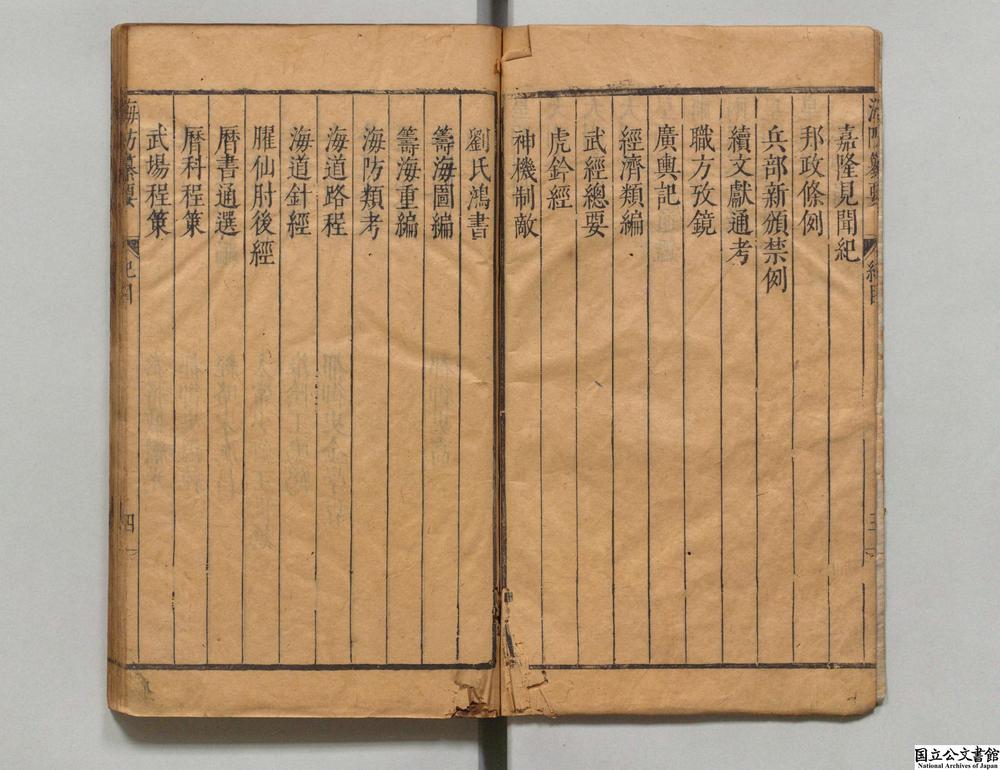 海防纂要
三
嘉隆見聞紀
邦政條例
兵部新頒禁例
續文獻通考
職方攷鏡
廣輿記
經濟類編
武經總要
虎鈐經
神機制敵
劉氏鴻書
籌海圖編
籌海重編
海防類考
海道路程
海道針經
臞仙肘後經
曆書通選
曆科程策
武場程策
海防纂要
四
国立公文書館
National Archives of Japan